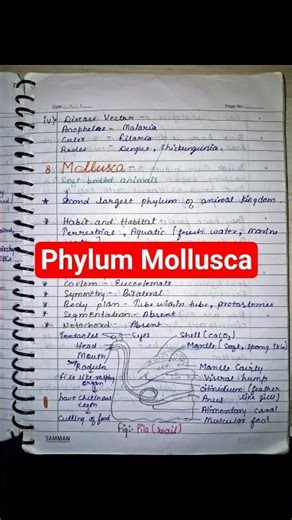 Date
Page No.
iv) Disease Vector -
Anopheles - Malaria
Culex - Filaria
Aedes - Dengue, Chikungunia.
8. Mollusca -
Soft bodied animals
* Second largest phylum of animal kingdom.
* Habit and Habitat
Terrestrial, Aquatic (fresh water, marine
Phylum Mollusca
* Coelom - Eucoelomate
* Symmetry - Bilateral
* Body plan - Tube within tube, protostomes
* Segmentation - Absent
* Notochord - Absent
Tentacles
Eyes
Shell (CaCO3)
Head
Mantle (Soft, spongy skin)
Mouth
Radula
Mantle Cavity
file like rasping organ
Visceral hump
Ctenidium (feather like gill)
have chitinous teeth
Anus
Alimentary canal
Cutting of food
Muscular foot
Fig: Pila (Snail)
SAMMAN